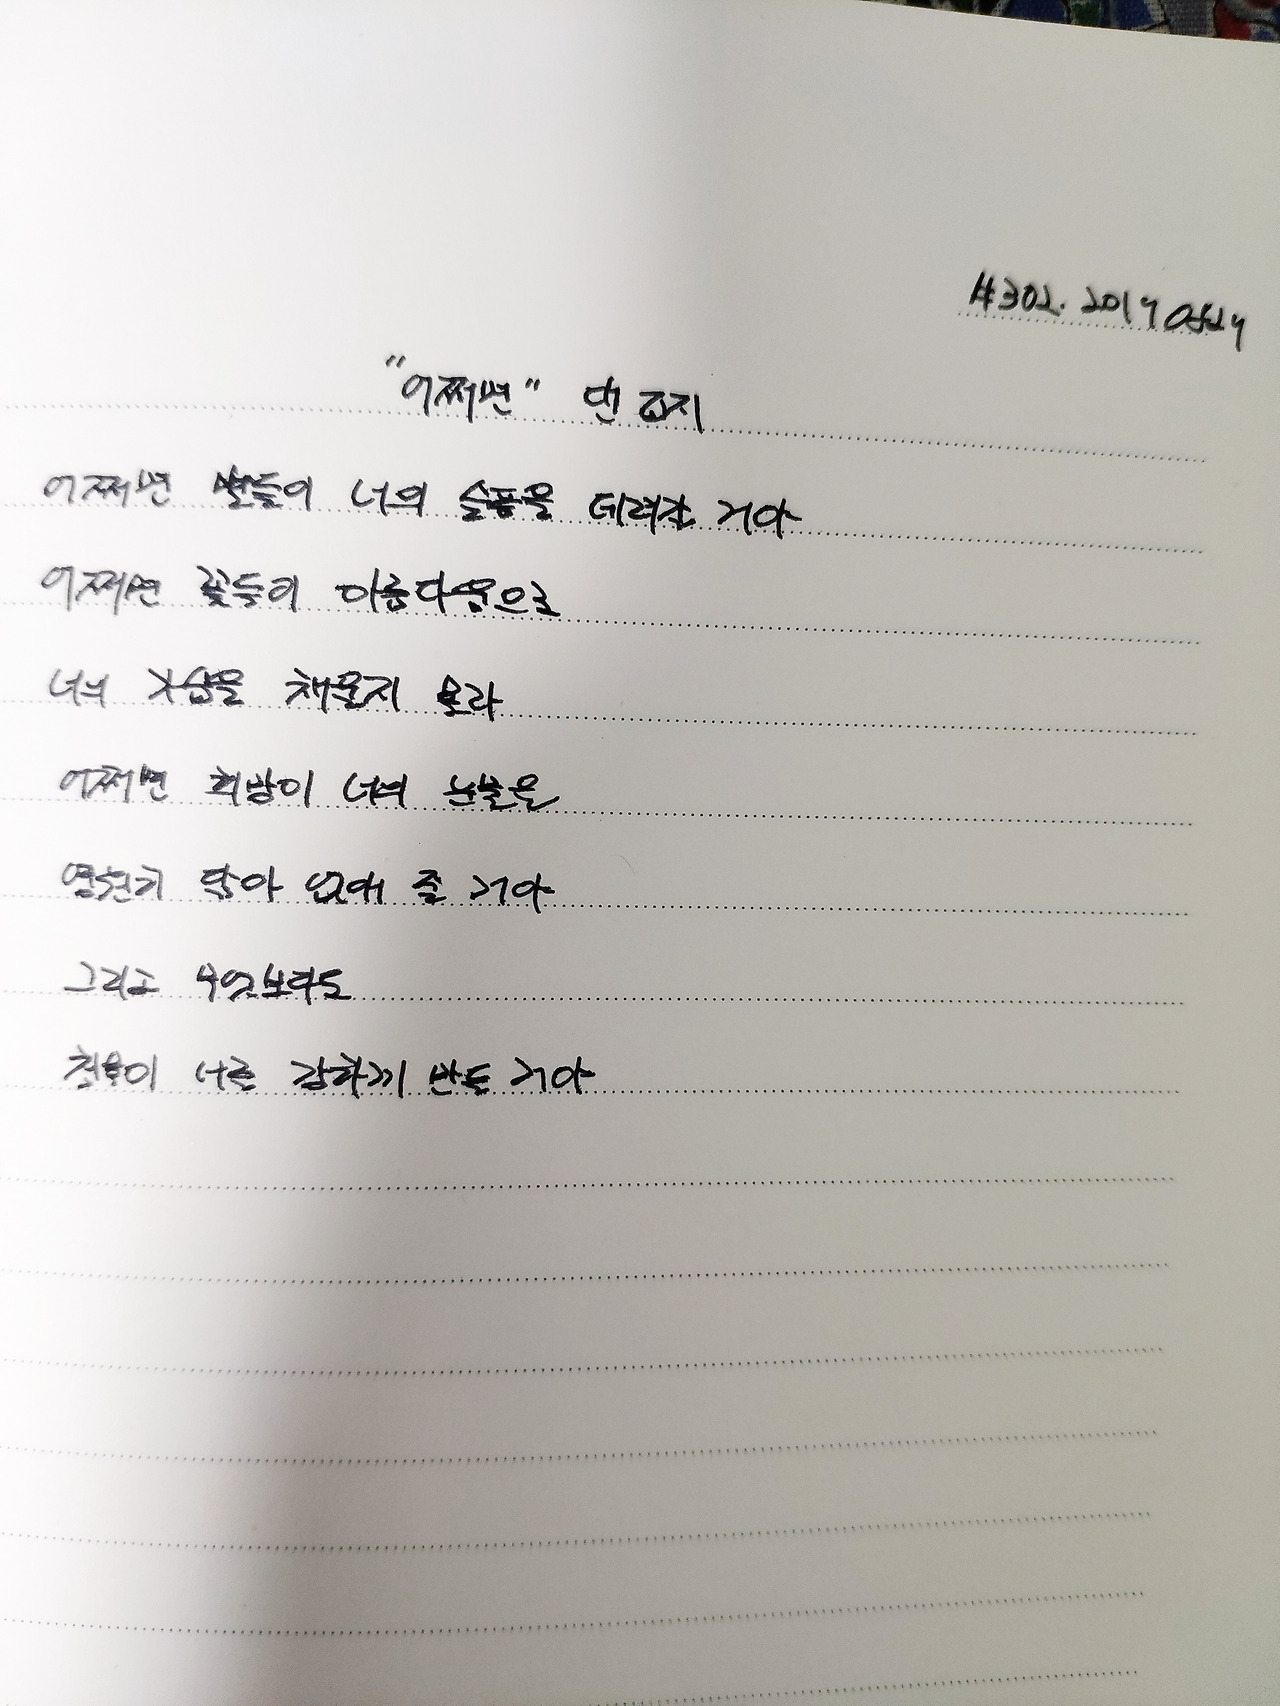 #302. 20190524
"어쩌면" 댄 조지
어쩌면 별들이 너의 슬픔을 데려갈 거야
어쩌면 꽃들이 아름다움으로
너의 가슴을 채울지 몰라
어쩌면 희망이 너의 눈물을
영원히 닦아 없애 줄 거야
그리고 무엇보다도
침묵이 너를 강하게 만들 거야